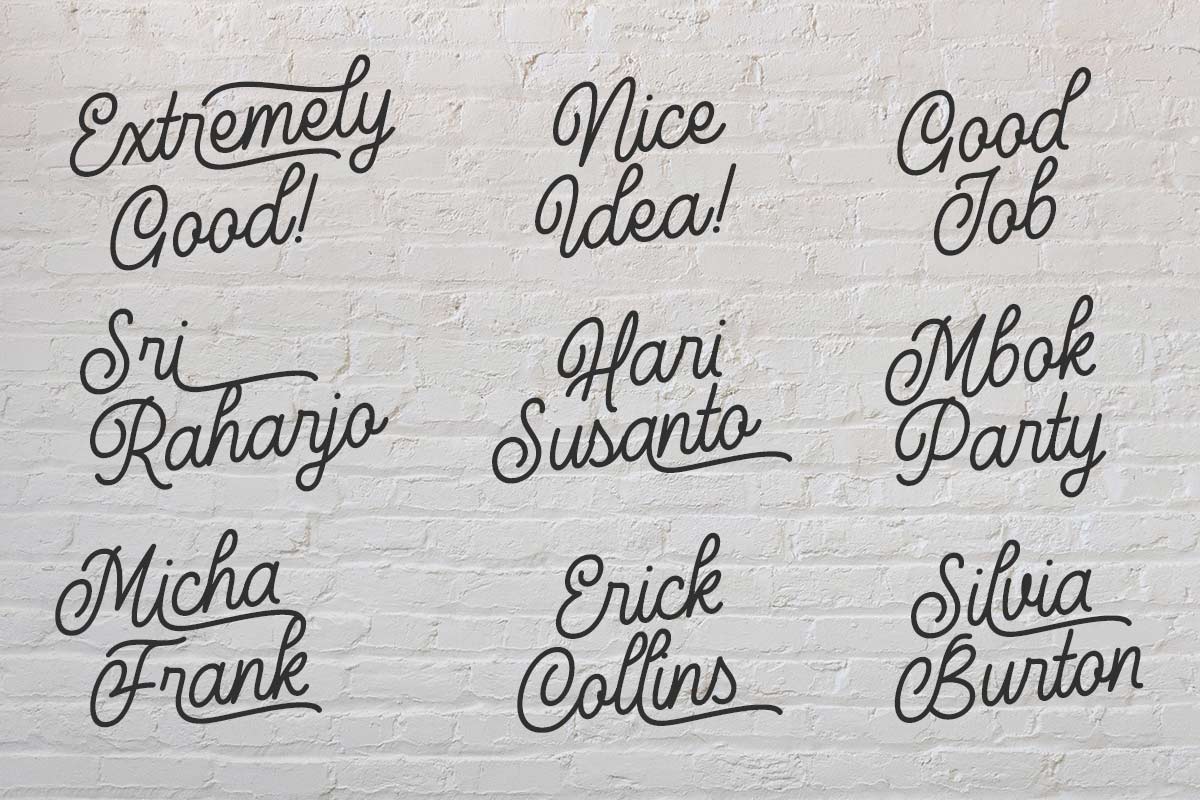 Extremely
Good!
Nice
Idea!
Good
Job
Sri
Raharjo
Hari
Susanto
Mbok
Party
Micha
Frank
Erick
Collins
Silvia
Burton